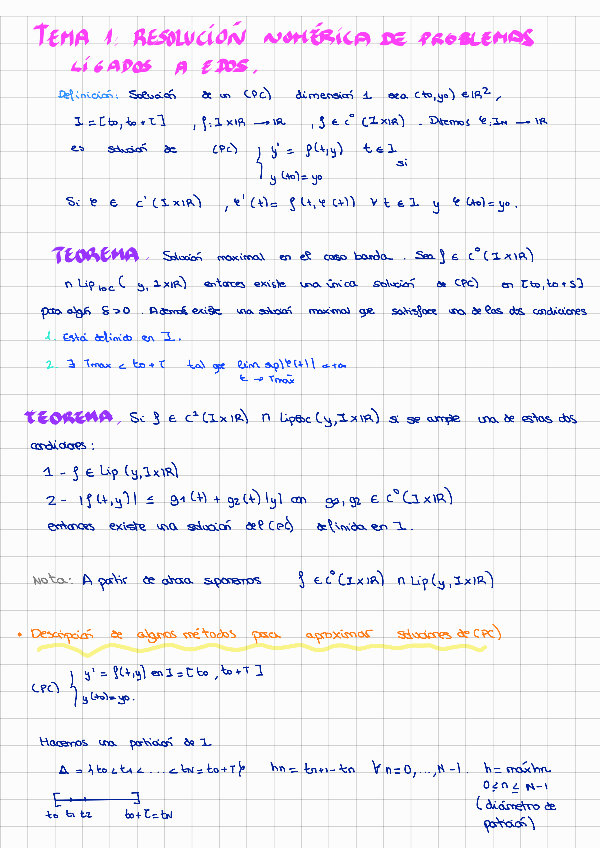 TEMA 1: RESOLUCIÓN NUMÉRICA DE PROBLEMAS
LIGADOS A EDOS.
Definición: Solución de un (PC) dimensión 1 sea (to,yo) ∈ IR²,
I = [to, to + T] , f: I x IR → IR , f ∈ C⁰ (I x IR) . Diremos φ: I → IR
es solución de (PC) { y' = f(t,y) t ∈ I
y (to) = yo
si
Si φ ∈ C' (I x IR) , φ'(t) = f (t, φ(t)) ∀ t ∈ I y φ(to) = yo.
TEOREMA. Solución maximal en el caso banda. Sea f ∈ C⁰ (I x IR)
∩ Lip loc ( y, I x IR) entonces existe una única solución de (PC) en [to, to + δ]
para algún δ > 0. Además existe una solución maximal que satisface una de las dos condiciones
1. Está definido en I.
2. ∃ Tmax < to + T tal que lim sup |φ(t)| = +∞
t → Tmax⁻
TEOREMA. Si f ∈ C¹ (I x IR) ∩ Liploc (y, I x IR) si se cumple una de estas dos
condiciones:
1 - f ∈ Lip (y, I x IR)
2 - |f(t,y)| ≤ g1(t) + g2(t) |y| con g1, g2 ∈ C⁰ (I x IR)
entonces existe una solución del (PC) definida en I.
Nota: A partir de ahora suponemos f ∈ C⁰ (I x IR) ∩ Lip (y, I x IR)
• Descripción de algunos métodos para aproximar soluciones de (PC)
(PC) { y' = f(t,y) en I = [to, to + T]
y (to) = yo.
Hacemos una partición de I
Δ = {to < t1 < ... < tN = to + T} hn = tn+1 - tn ∀ n = 0, ..., N-1. h = máx hn
0 ≤ n ≤ N-1
(diámetro de
partición)
to t1 t2 to + T = tN